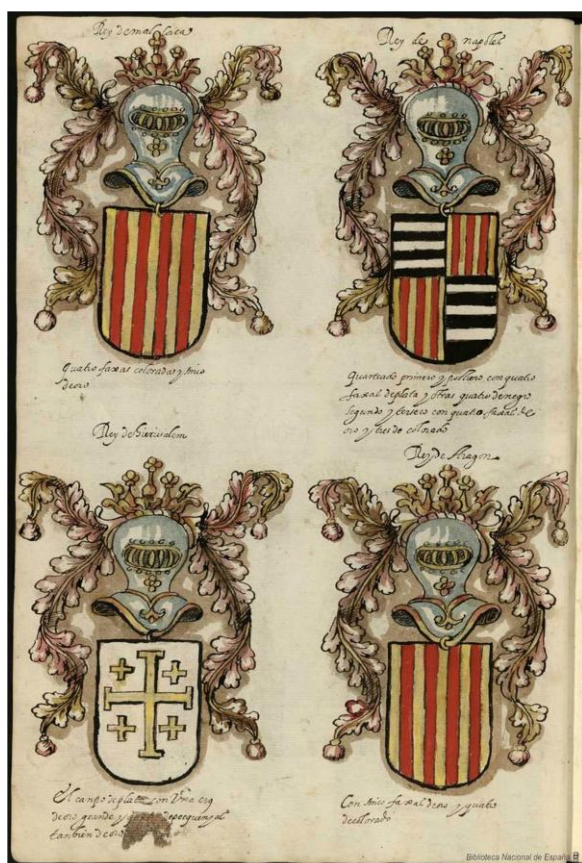 Rey de mallorca
Quatro faxas coloradas y sinco
de oro
Rey de napoles
Quarteado primero y postrero con quatro
faxas de plata y otras quatro de negro
segundo y tersero con quatro faxas de
oro y tres de colorado
Rey de hierusalem
El campo de plata con Una cruz
de oro grande y pequeñas
tambien de oro
Rey de Aragon
Con sinco faxas de oro y quatro
de colorado
Biblioteca Nacional de España